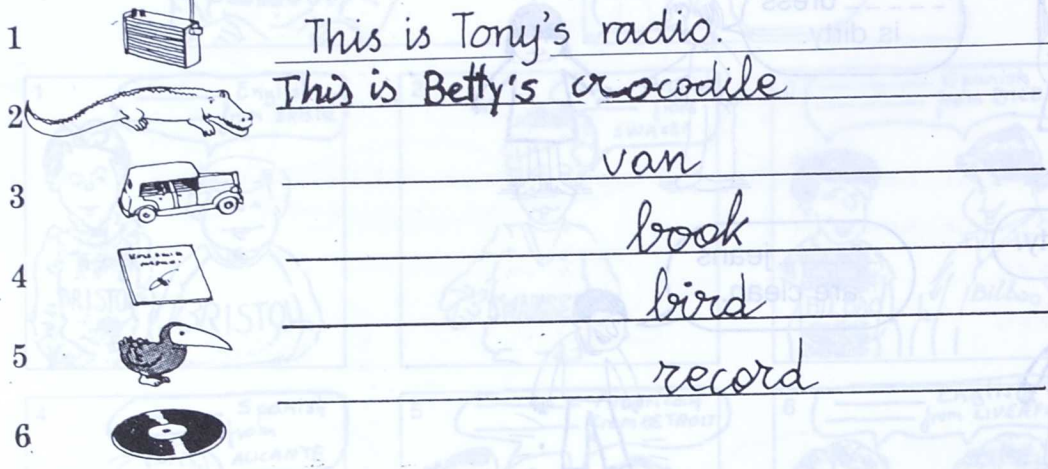 1 This is Tony's radio.
2 This is Betty's crocodile
3 van
4 book
5 bird
6 record